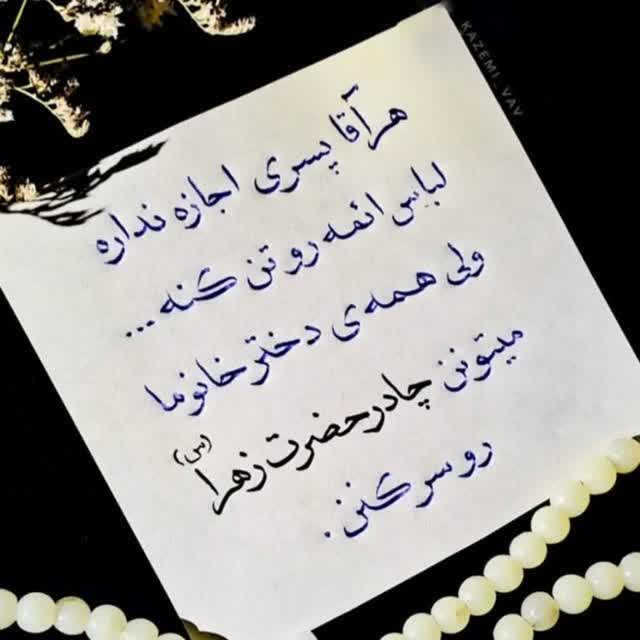 KAZEMI_VAV
هر آقا پسری اجازه نداره
لباس ائمه رو تن کنه...
ولی همه‌ی دختر خانوما
میتونن چادر حضرت زهرا (س)
رو سر کنن.